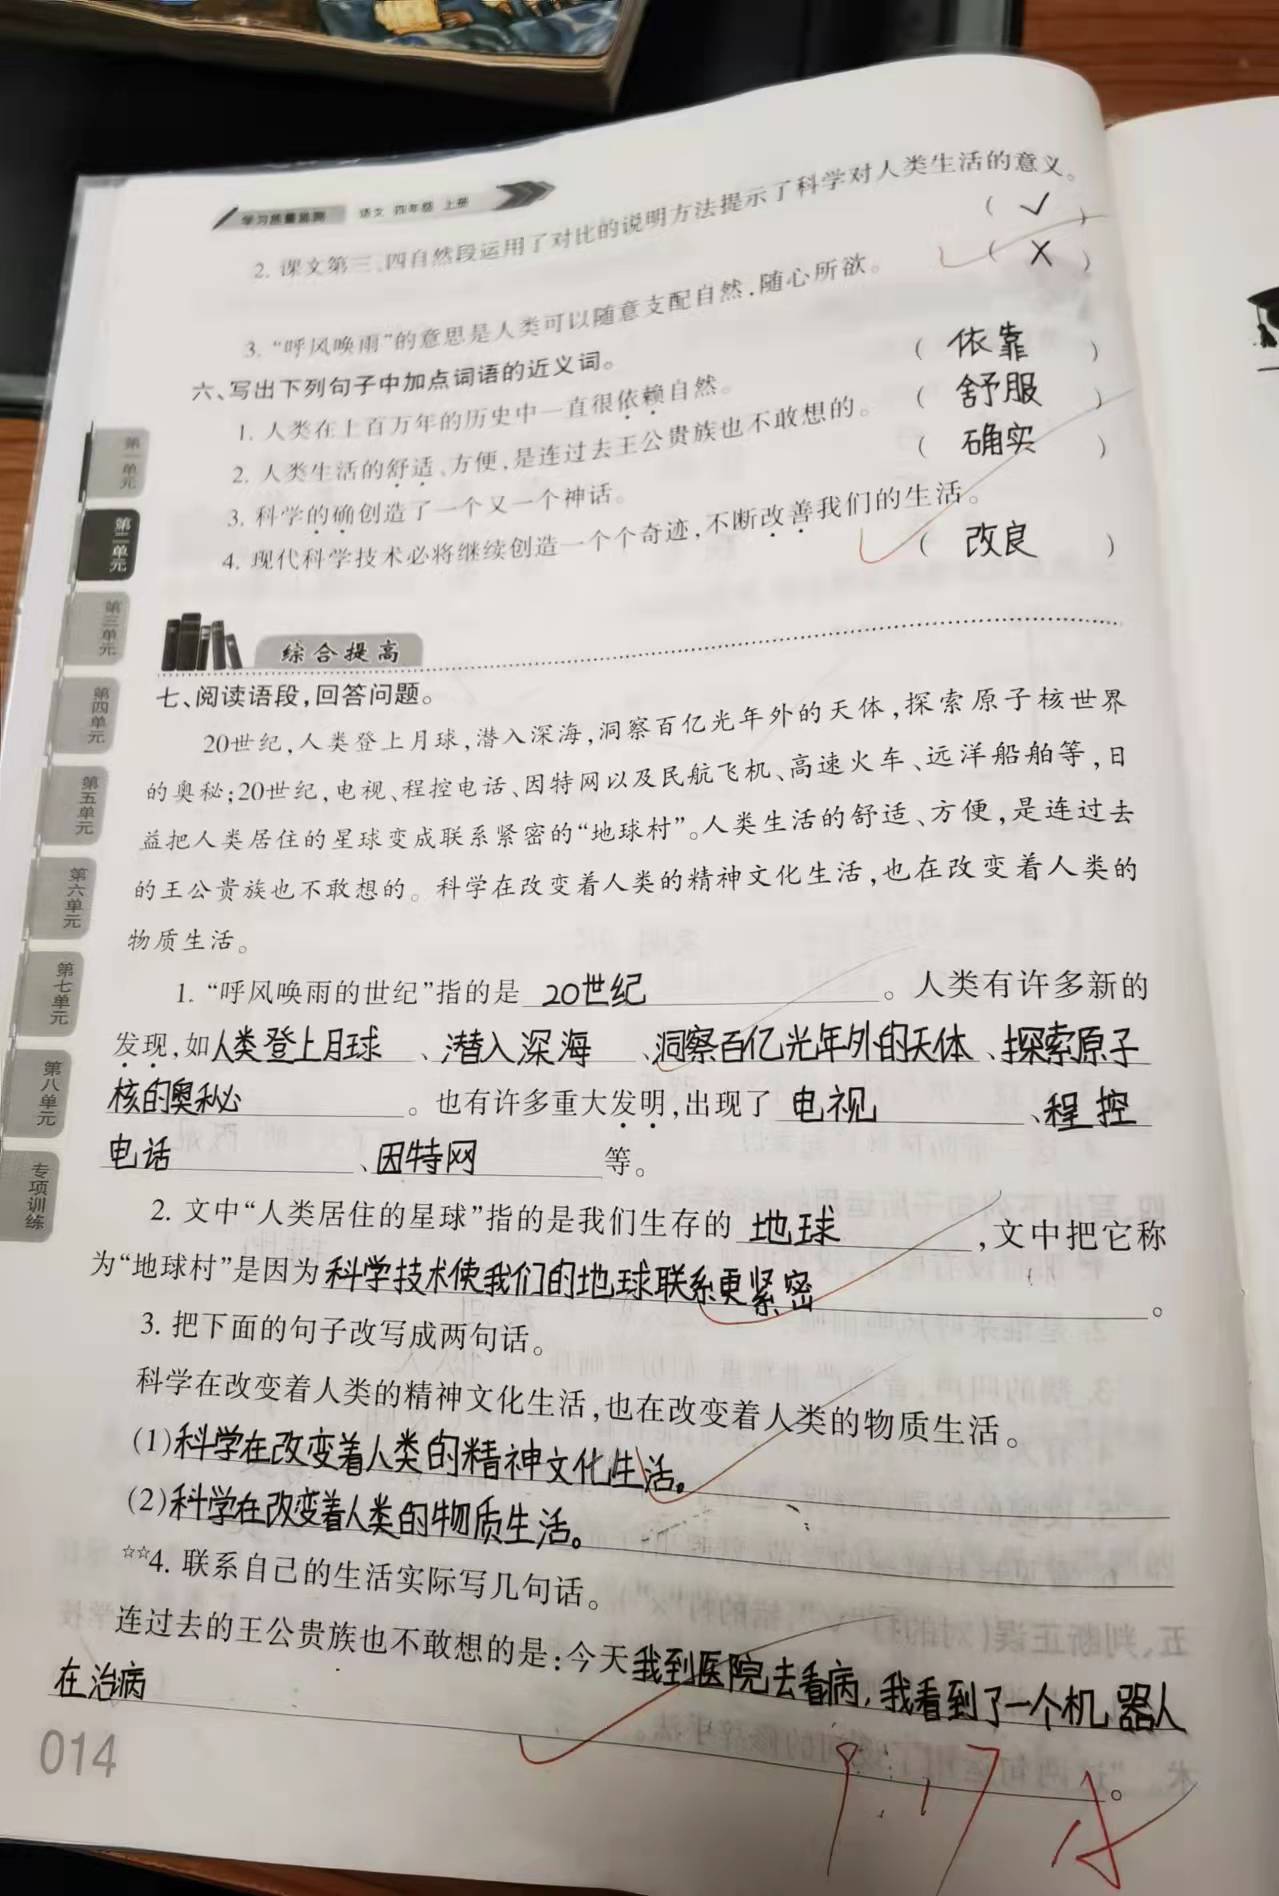 学习质量监测 语文 四年级 上册
2. 课文第三、四自然段运用了对比的说明方法提示了科学对人类生活的意义。
( √ )
3. “呼风唤雨”的意思是人类可以随意支配自然,随心所欲。 ( X )
六、写出下列句子中加点词语的近义词。
1. 人类在上百万年的历史中一直很依赖自然。 ( 依靠 )
2. 人类生活的舒适、方便,是连过去王公贵族也不敢想的。 ( 舒服 )
3. 科学的确创造了一个又一个神话。 ( 确实 )
4. 现代科学技术必将继续创造一个个奇迹,不断改善我们的生活。
( 改良 )
综合提高
七、阅读语段,回答问题。
20世纪,人类登上月球,潜入深海,洞察百亿光年外的天体,探索原子核世界
的奥秘;20世纪,电视、程控电话、因特网以及民航飞机、高速火车、远洋船舶等,日
益把人类居住的星球变成联系紧密的“地球村”。人类生活的舒适、方便,是连过去
的王公贵族也不敢想的。科学在改变着人类的精神文化生活,也在改变着人类的
物质生活。
1. “呼风唤雨的世纪”指的是 20世纪 。人类有许多新的
发现,如人类登上月球 、潜入深海 、洞察百亿光年外的天体 、探索原子
核的奥秘 。也有许多重大发明,出现了 电视 、程控
电话 、因特网 等。
2. 文中“人类居住的星球”指的是我们生存的 地球 ,文中把它称
为“地球村”是因为科学技术使我们的地球联系更紧密 。
3. 把下面的句子改写成两句话。
科学在改变着人类的精神文化生活,也在改变着人类的物质生活。
(1)科学在改变着人类的精神文化生活。
(2)科学在改变着人类的物质生活。
☆☆4. 联系自己的生活实际写几句话。
连过去的王公贵族也不敢想的是:今天我到医院去看病,我看到了一个机器人
在治病 。
9.17
014
第一单元
第二单元
第三单元
第四单元
第五单元
第六单元
第七单元
第八单元
专项训练